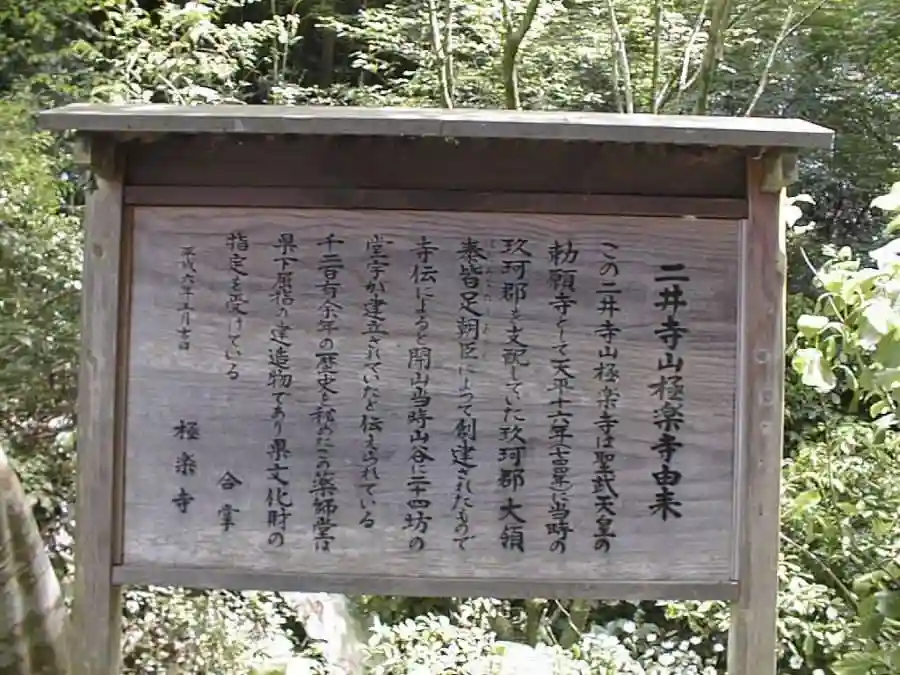 二井寺山極楽寺由来
この二井寺山極楽寺は聖武天皇の
勅願寺として天平十六年(七四四年)に当時の
玖珂郡を支配していた玖珂郡大領
秦皆足朝臣によって創建されたもので
寺伝によると開山当時山谷に二十四坊の
堂宇が建立されていたと伝えられている
千二百有余年の歴史を秘めたこの薬師堂は
県下屈指の建造物であり県文化財の
指定を受けている
合掌
平成六年
極楽寺